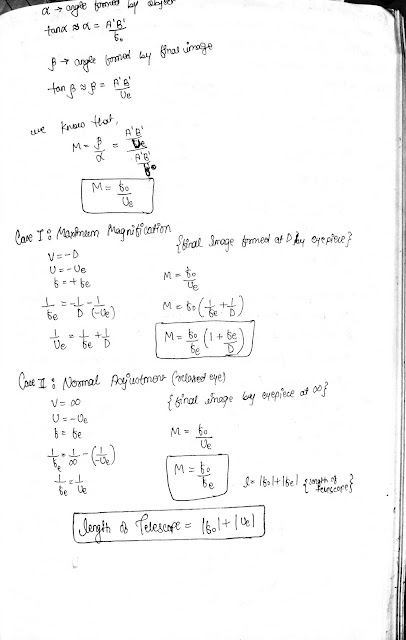 α → angle formed by object
tanα ≈ α = A'B'/fo
β → angle formed by final image
tan β ≈ β = A'B'/Ue
we know that,
M = β/α = (A'B'/Ue)/(A'B'/fo)
M = fo/Ue
Case I : Maximum Magnification
{final Image formed at D by eyepiece}
V = -D
U = -Ue
f = +fe
1/fe = -1/D - 1/(-Ue)
1/Ue = 1/fe + 1/D
M = fo/Ue
M = fo(1/fe + 1/D)
M = fo/fe (1 + fe/D)
Case II : Normal Adjustment (relaxed eye)
{final image by eyepiece at ∞}
V = ∞
U = -Ue
f = fe
1/fe = 1/∞ - (1/-Ue)
1/fe = 1/Ue
M = fo/Ue
M = fo/fe
l = |fo|+|fe| {length of telescope}
length of Telescope = |fo|+|Ue|